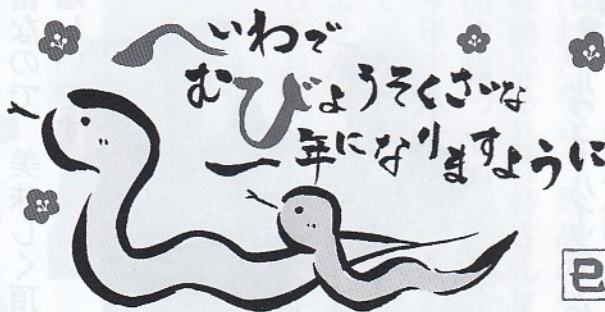 へいわで
むびょうそくさいな
一年になりますように
巳